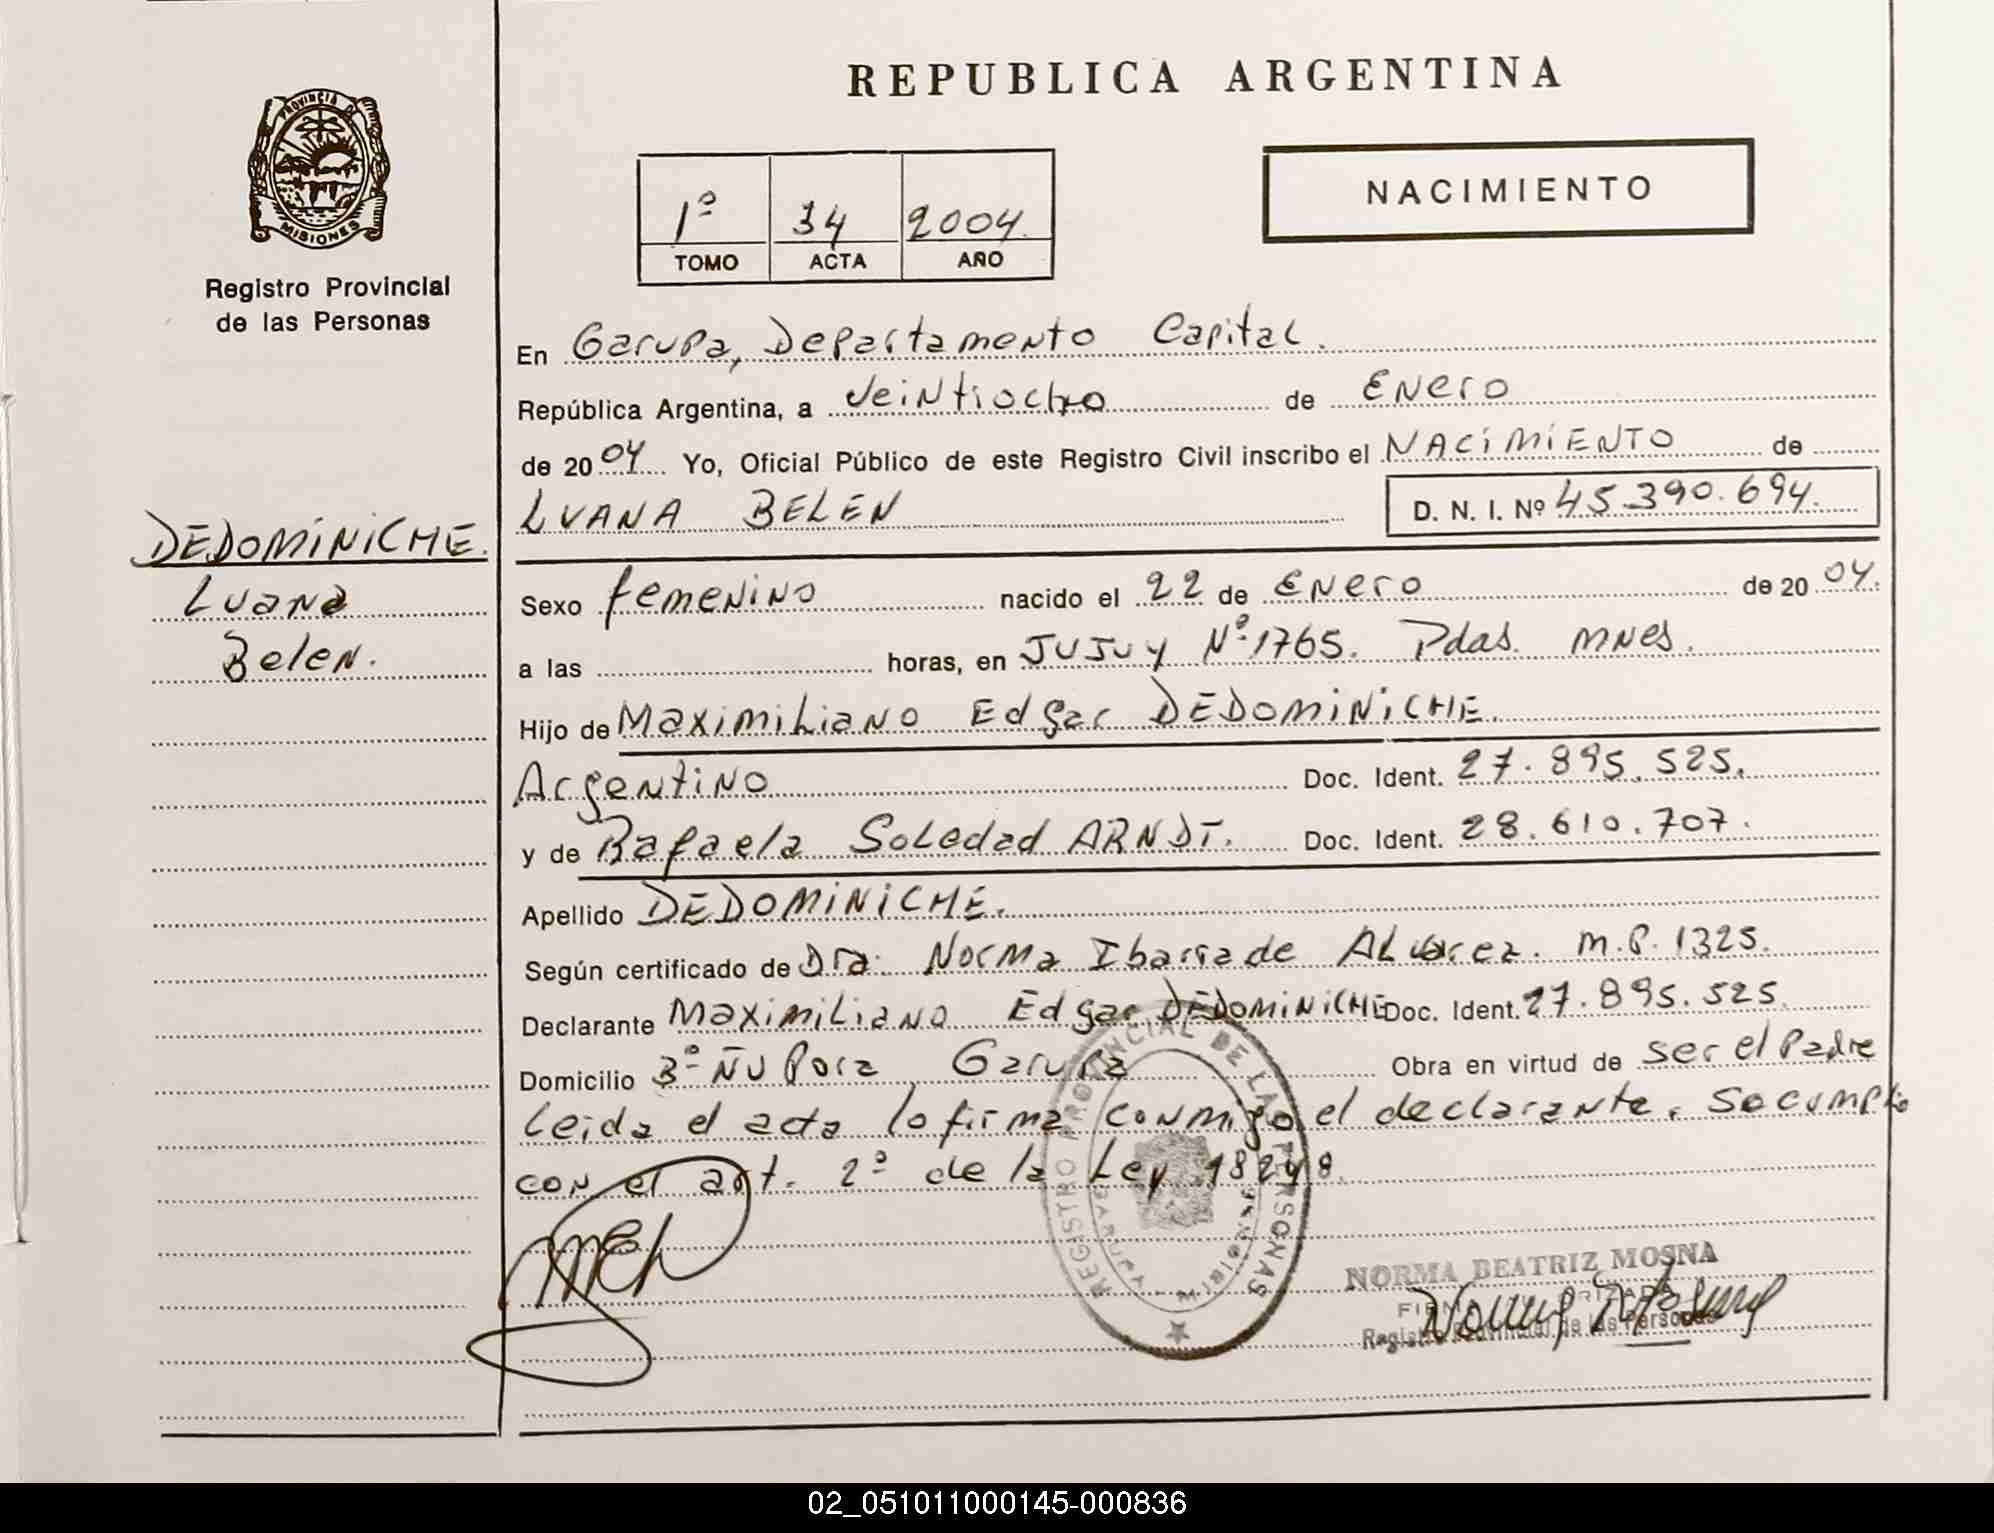 REPUBLICA ARGENTINA
PROVINCIA DE
MISIONES
Registro Provincial
de las Personas
1º 34 2004
TOMO ACTA AÑO
NACIMIENTO
En Garupa, Departamento Capital.
República Argentina, a veintiocho de Enero
de 20 04 Yo, Oficial Público de este Registro Civil inscribo el NACIMIENTO de
LUANA BELEN D. N. I. Nº 45.390.694.
DEDOMINICHE.
Luana
Belen.
Sexo femenino nacido el 22 de Enero de 20 04.
a las horas, en JUJUY Nº 1765. Pdas. mnes.
Hijo de Maximiliano Edgar DEDOMINICHE.
Argentino Doc. Ident. 27.895.525.
y de Rafaela Soledad ARNDT. Doc. Ident. 28.610.707.
Apellido DEDOMINICHE.
Según certificado de Dra. Norma Ibarra de Alvarez. m.p. 1325.
Declarante Maximiliano Edgar DEDOMINICHE Doc. Ident. 27.895.525.
Domicilio Bº Ñu Pora Garupa Obra en virtud de ser el Padre
Leida el acta lo firma conmigo el declarante. Se cumplio
con el art. 2º de la Ley 18248.
REGISTRO PROVINCIAL DE LAS PERSONAS
NORMA BEATRIZ MOSNA
Registro Provincial de las Personas
02_051011000145-000836